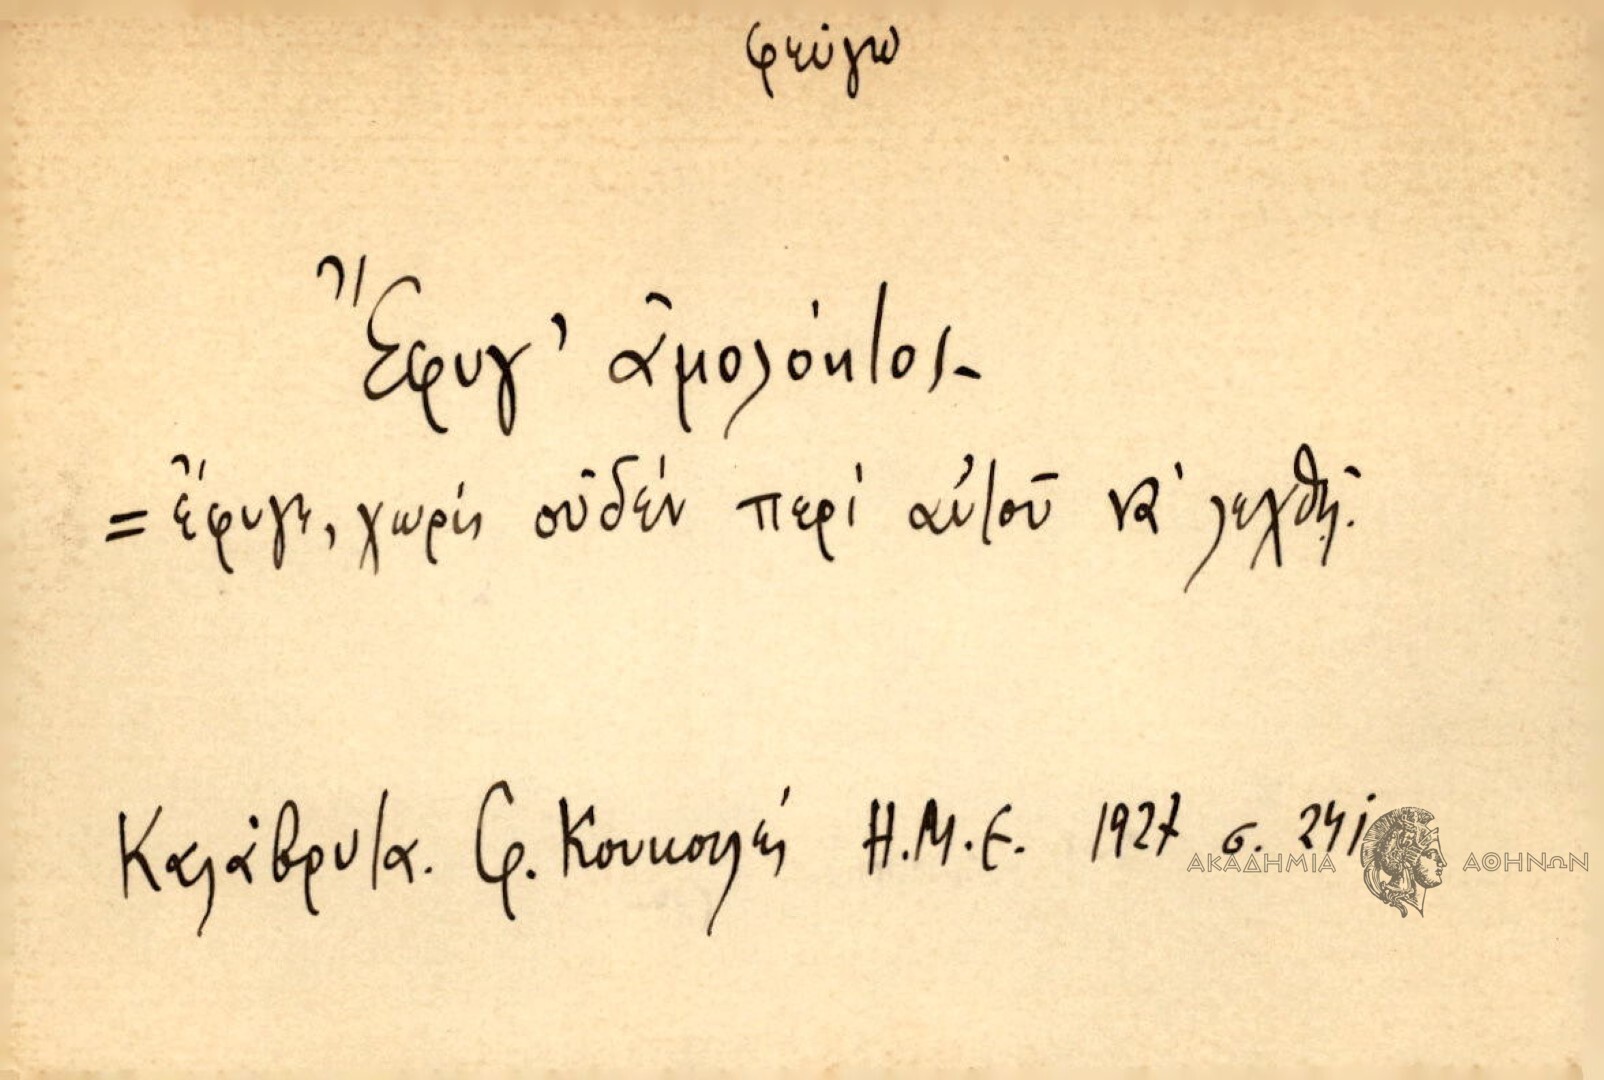 φεύγω
Ἔφυγ' ἀμολόητος.
= ἔφυγε, χωρίς οὐδέν περί αὐτοῦ νὰ λεχθῇ.
Καλάβρυτα. Φ. Κουκουλές Η.Μ.Ε. 1927 σ.
ΑΚΑΔΗΜΙΑ ΑΘΗΝΩΝ